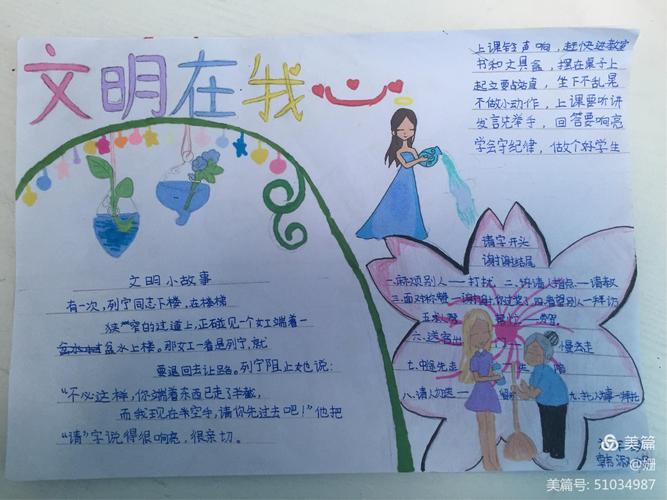 文明在我心
上课铃声响,赶快进教室
书和文具盒,摆在桌子上
起立要站直,坐下不乱晃
不做小动作,上课要听讲
发言先举手,回答要响亮
学会守纪律,做个好学生
文明小故事
有一次,列宁同志下楼,在楼梯
狭窄的过道上,正碰见一个女工端着一
盆水上楼。那女工一看是列宁,就
要退回去让路。列宁阻止她说:
“不必这样,你端着东西已走了半截,
而我现在手空手,请你先过去吧!”他把
“请”字说得很响亮,很亲切。
请字开头
谢谢结尾
一.麻烦别人——打扰 二.求请人指点——请教
三.面对称赞——谢谢,你过奖了 四.看望别人—拜访
五.
六.送客出 慢走
七.中途先走
八.请人勿送—留步 九.托人办事—拜托
美篇
@姗
美篇号: 51034987